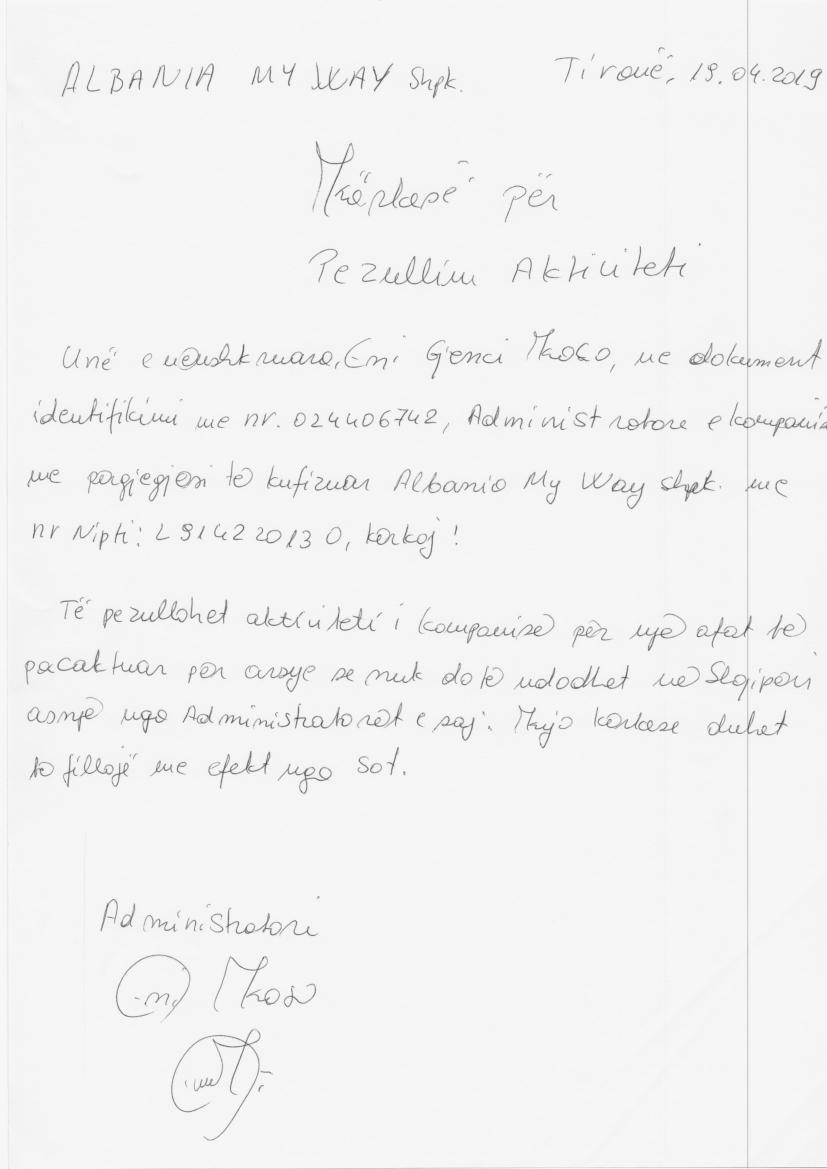 ALBANIA MY WAY Shpk. Tiranë, 19.04.2019
Kërkesë për
Pezullim Aktiviteti
Unë e nënshkruara, Eni Gjenci Koço, me dokument
identifikimi me nr. 024406742, Administratore e kompanisë
me përgjegjësi të kufizuar Albania My Way shpk. me
nr Nipti: L91422013O, kërkoj!
Të pezullohet aktiviteti i kompanisë për një afat të
pacaktuar për arsye se nuk do të ndodhet në Shqipëri
asnjë nga Administratorët e saj. Kjo kërkesë duhet
të fillojë me efekt nga sot.
Administratori
Eni Koço